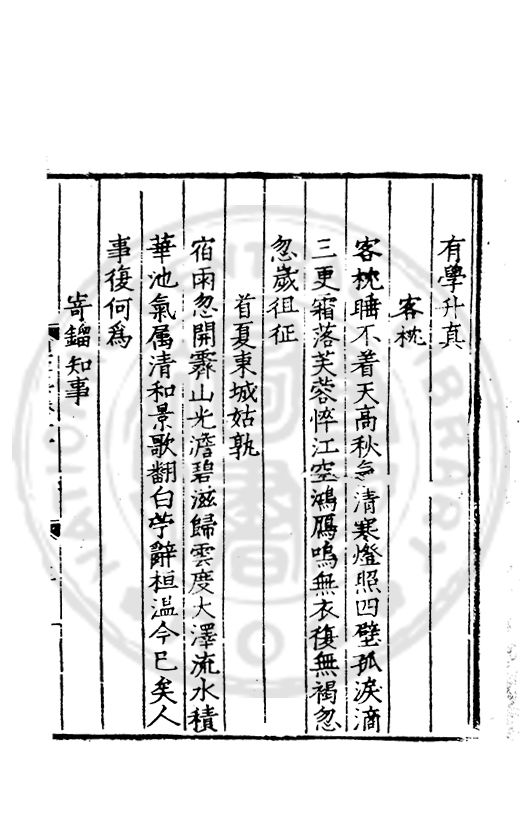 有學升真
客枕
客枕睡不着天高秋氣清寒燈照四壁孤淚滴
三更霜落芙蓉悴江空鴻鴈鳴無衣復無褐忽
忽歲徂征
首夏東城姑孰
宿雨忽開霽山光澹碧滋歸雲度大澤流水積
華池氣屬清和景歌翻白苧辭桓温今已矣人
事復何爲
寄鎦知事